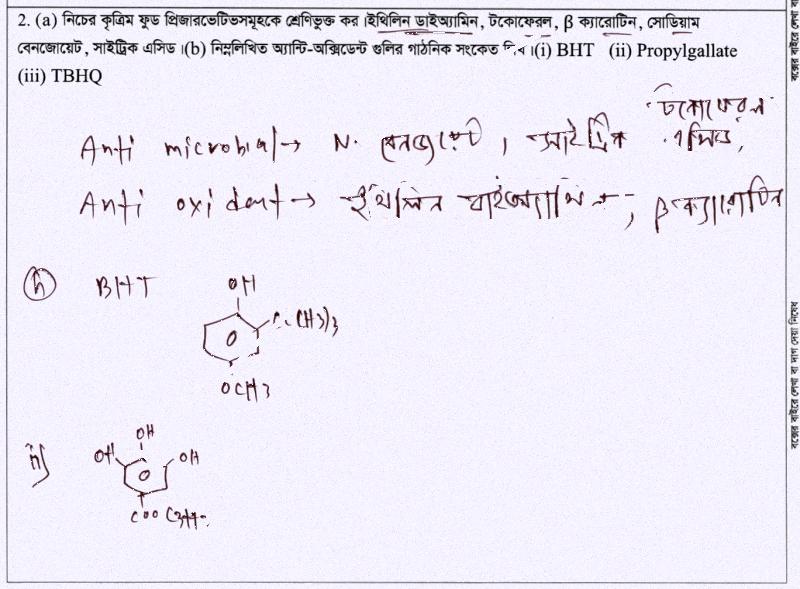 2. (a) নিচের কৃত্রিম ফুড প্রিজারভেটিভসমূহকে শ্রেণিভুক্ত কর।ইথিলিন ডাইঅ্যামিন, টকোফেরল, β ক্যারোটিন, সোডিয়াম
বেনজোয়েট, সাইট্রিক এসিড।(b) নিম্নলিখিত অ্যান্টি-অক্সিডেন্ট গুলির গাঠনিক সংকেত লিখ।(i) BHT (ii) Propylgallate
(iii) TBHQ
টকোফেরল
Anti microbial → N. বেনজোয়েট, সাইট্রিক এসিড,
Anti oxident → ইথিলিন ডাইঅ্যামিন, β ক্যারোটিন
BHT
OH
C(CH3)3
OCH3
ii)
OH
OH OH
COO C3H7
বক্সের বাইরে লেখা বা দাগ দেয়া নিষেধ